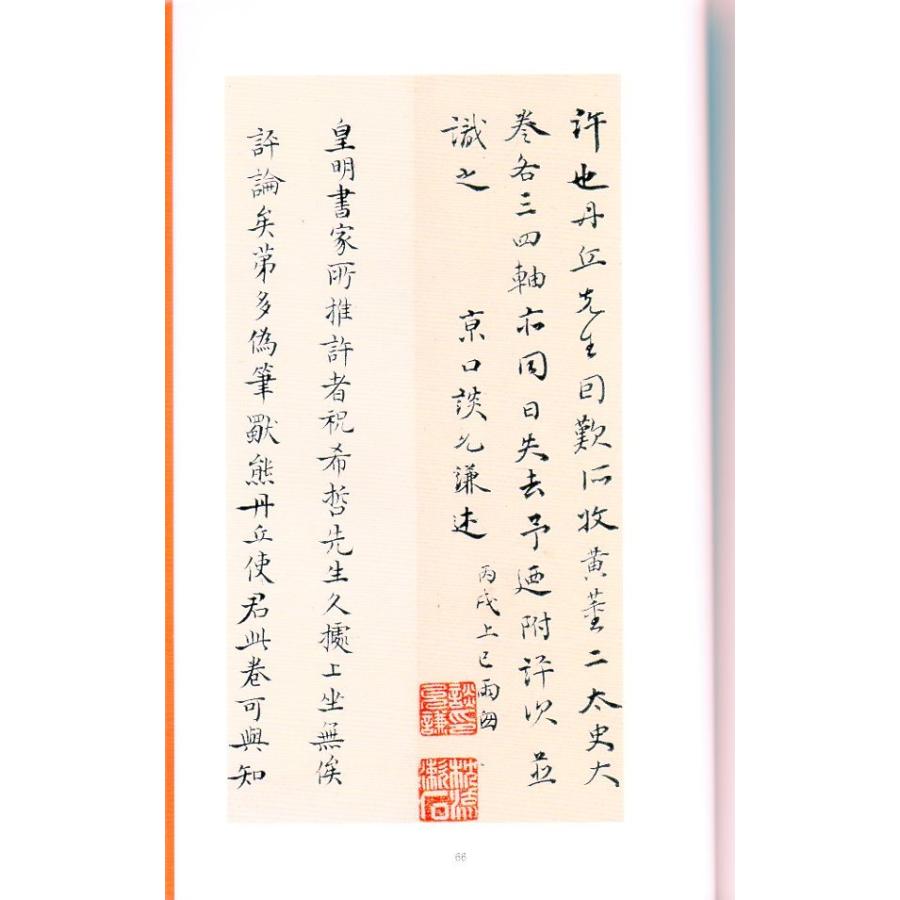 許也丹丘先生囙歎所收黃董二太史大
卷各三四軸亦同日失去予迺附評次並
識之 京口談允謙述
丙戌上巳雨囪
談印允謙
枕流漱石
皇明書家所推許者祝希哲先生久據上坐無俟
評論矣第多偽筆熊丹丘使君此卷可與知
66